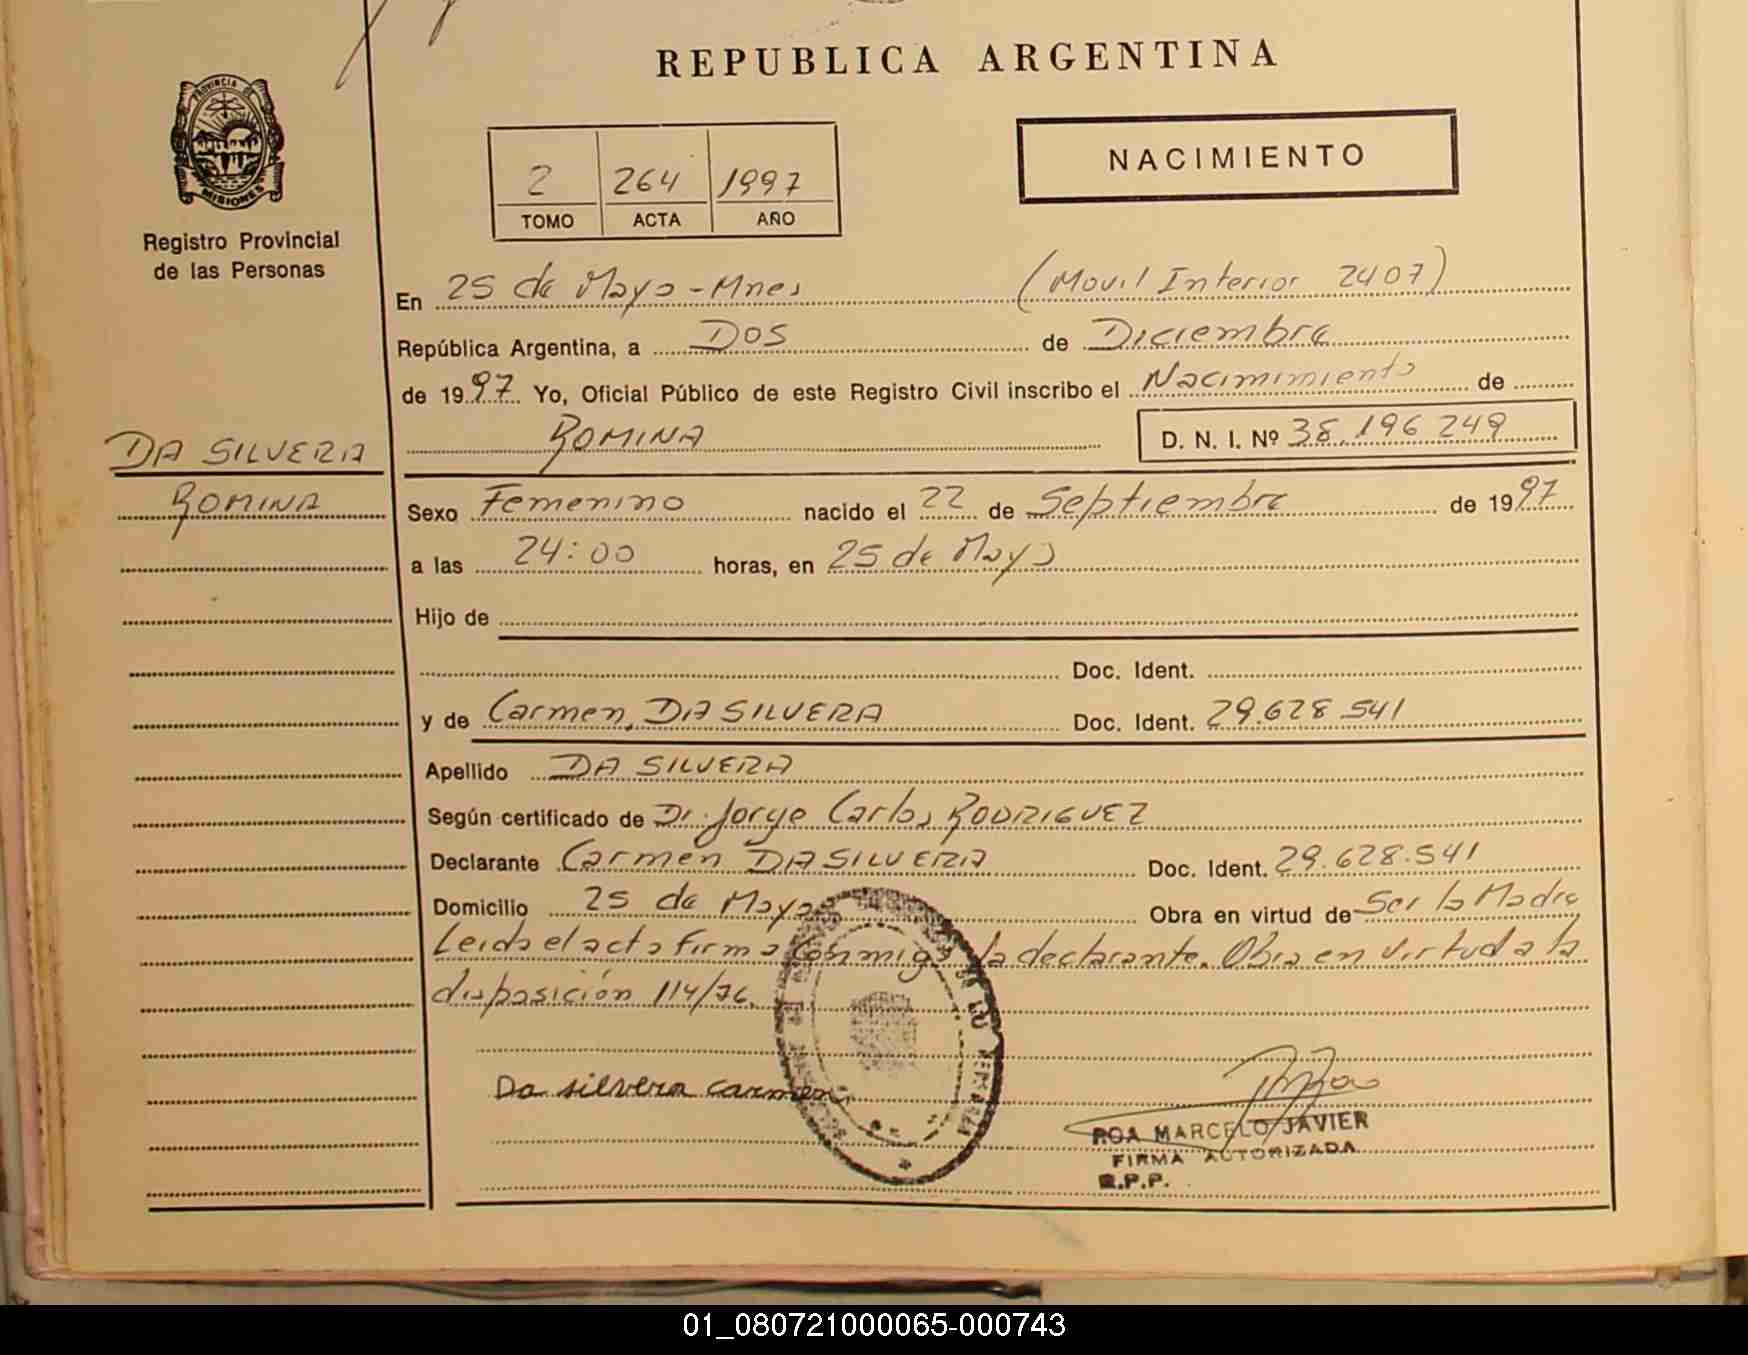 REPUBLICA ARGENTINA
PROVINCIA DE
MISIONES
Registro Provincial
de las Personas
2 264 1997
TOMO ACTA AÑO
NACIMIENTO
En 25 de Mayo-Mnes (Movil Interior 2407)
República Argentina, a Dos de Diciembre
de 1997 Yo, Oficial Público de este Registro Civil inscribo el Nacimimiento de
ROMINA D. N. I. Nº 38.196 249
DA SILVERA
ROMINA
Sexo Femenino nacido el 22 de Septiembre de 1997
a las 24:00 horas, en 25 de Mayo
Hijo de
Doc. Ident.
y de Carmen, DA SILVERA Doc. Ident. 29.628 541
Apellido DA SILVERA
Según certificado de Dr. Jorge Carlos RODRIGUEZ
Declarante Carmen DA SILVERA Doc. Ident. 29.628.541
Domicilio 25 de Mayo Obra en virtud de Ser la Madre
Leida el acta Firma Conmigo la declarante. Obra en virtud a la
disposición 114/76.
Da silvera carmen
ROA MARCELO JAVIER
FIRMA AUTORIZADA
R.P.P.
01_080721000065-000743